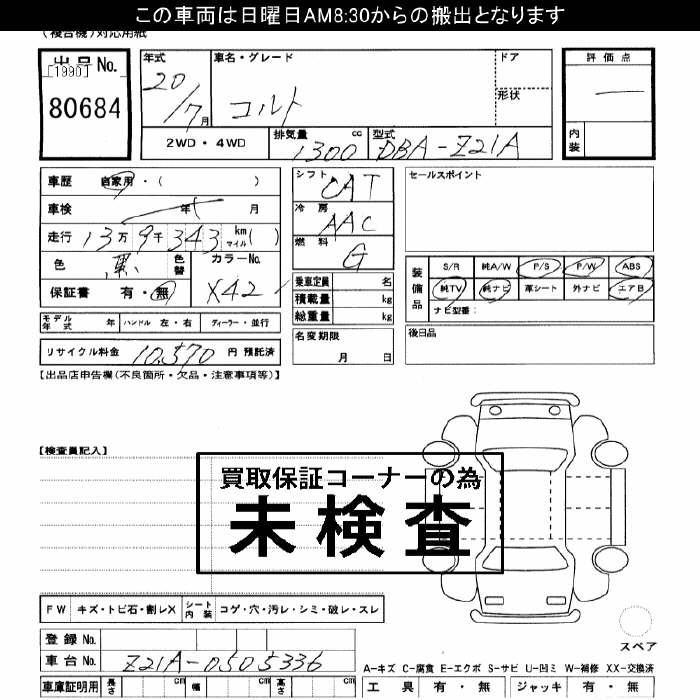 この車両は日曜日AM8:30からの搬出となります
(複合機)対応用紙
出品No. [1990] 80684
年式 20/7月
車名・グレード コルト
ドア
形状
評価点 —
内装
2WD・4WD
排気量 1300 cc
型式 DBA-Z21A
車歴 自家用・( )
車検 年 月
走行 13万9千343 km マイル( )
色 黒 色替
カラーNo. X42
保証書 有・無
シフト CAT
冷房 AAC
燃料 G
乗車定員 名
積載量 kg
総重量 kg
名変期限 月 日
セールスポイント
装備品
S/R 純A/W P/S P/W ABS
純TV 純ナビ 革シート 外ナビ エアB
ナビ型番:
後日品
モデル年式 年 ハンドル 左・右 ディーラー・並行
リサイクル料金 10,570 円 預託済
【出品店申告欄(不良箇所・欠品・注意事項等)】
【検査員記入】
買取保証コーナーの為
未検査
FW キズ・トビ石・割レX シート内装 コゲ・穴・汚レ・シミ・破レ・スレ
スペア
登録No.
車台No. Z21A-0505336
A-キズ C-腐食 E-エクボ S-サビ U-凹ミ W-補修 XX-交換済
車庫証明用 長さ cm 幅 cm 高さ cm
工具 有・無 ジャッキ 有・無